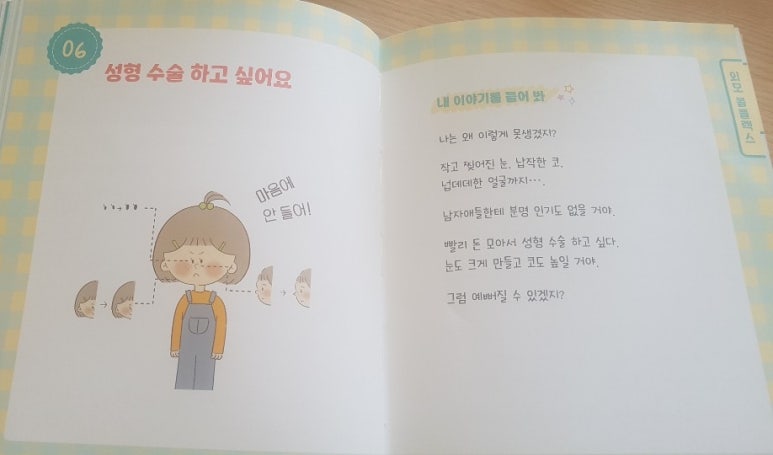 06
성형 수술 하고 싶어요
마음에
안 들어!
내 이야기를 들어 봐
나는 왜 이렇게 못생겼지?
작고 찢어진 눈, 납작한 코,
넙데데한 얼굴까지….
남자애들한테 분명 인기도 없을 거야.
빨리 돈 모아서 성형 수술 하고 싶다.
눈도 크게 만들고 코도 높일 거야.
그럼 예뻐질 수 있겠지?
외모 콤플렉스